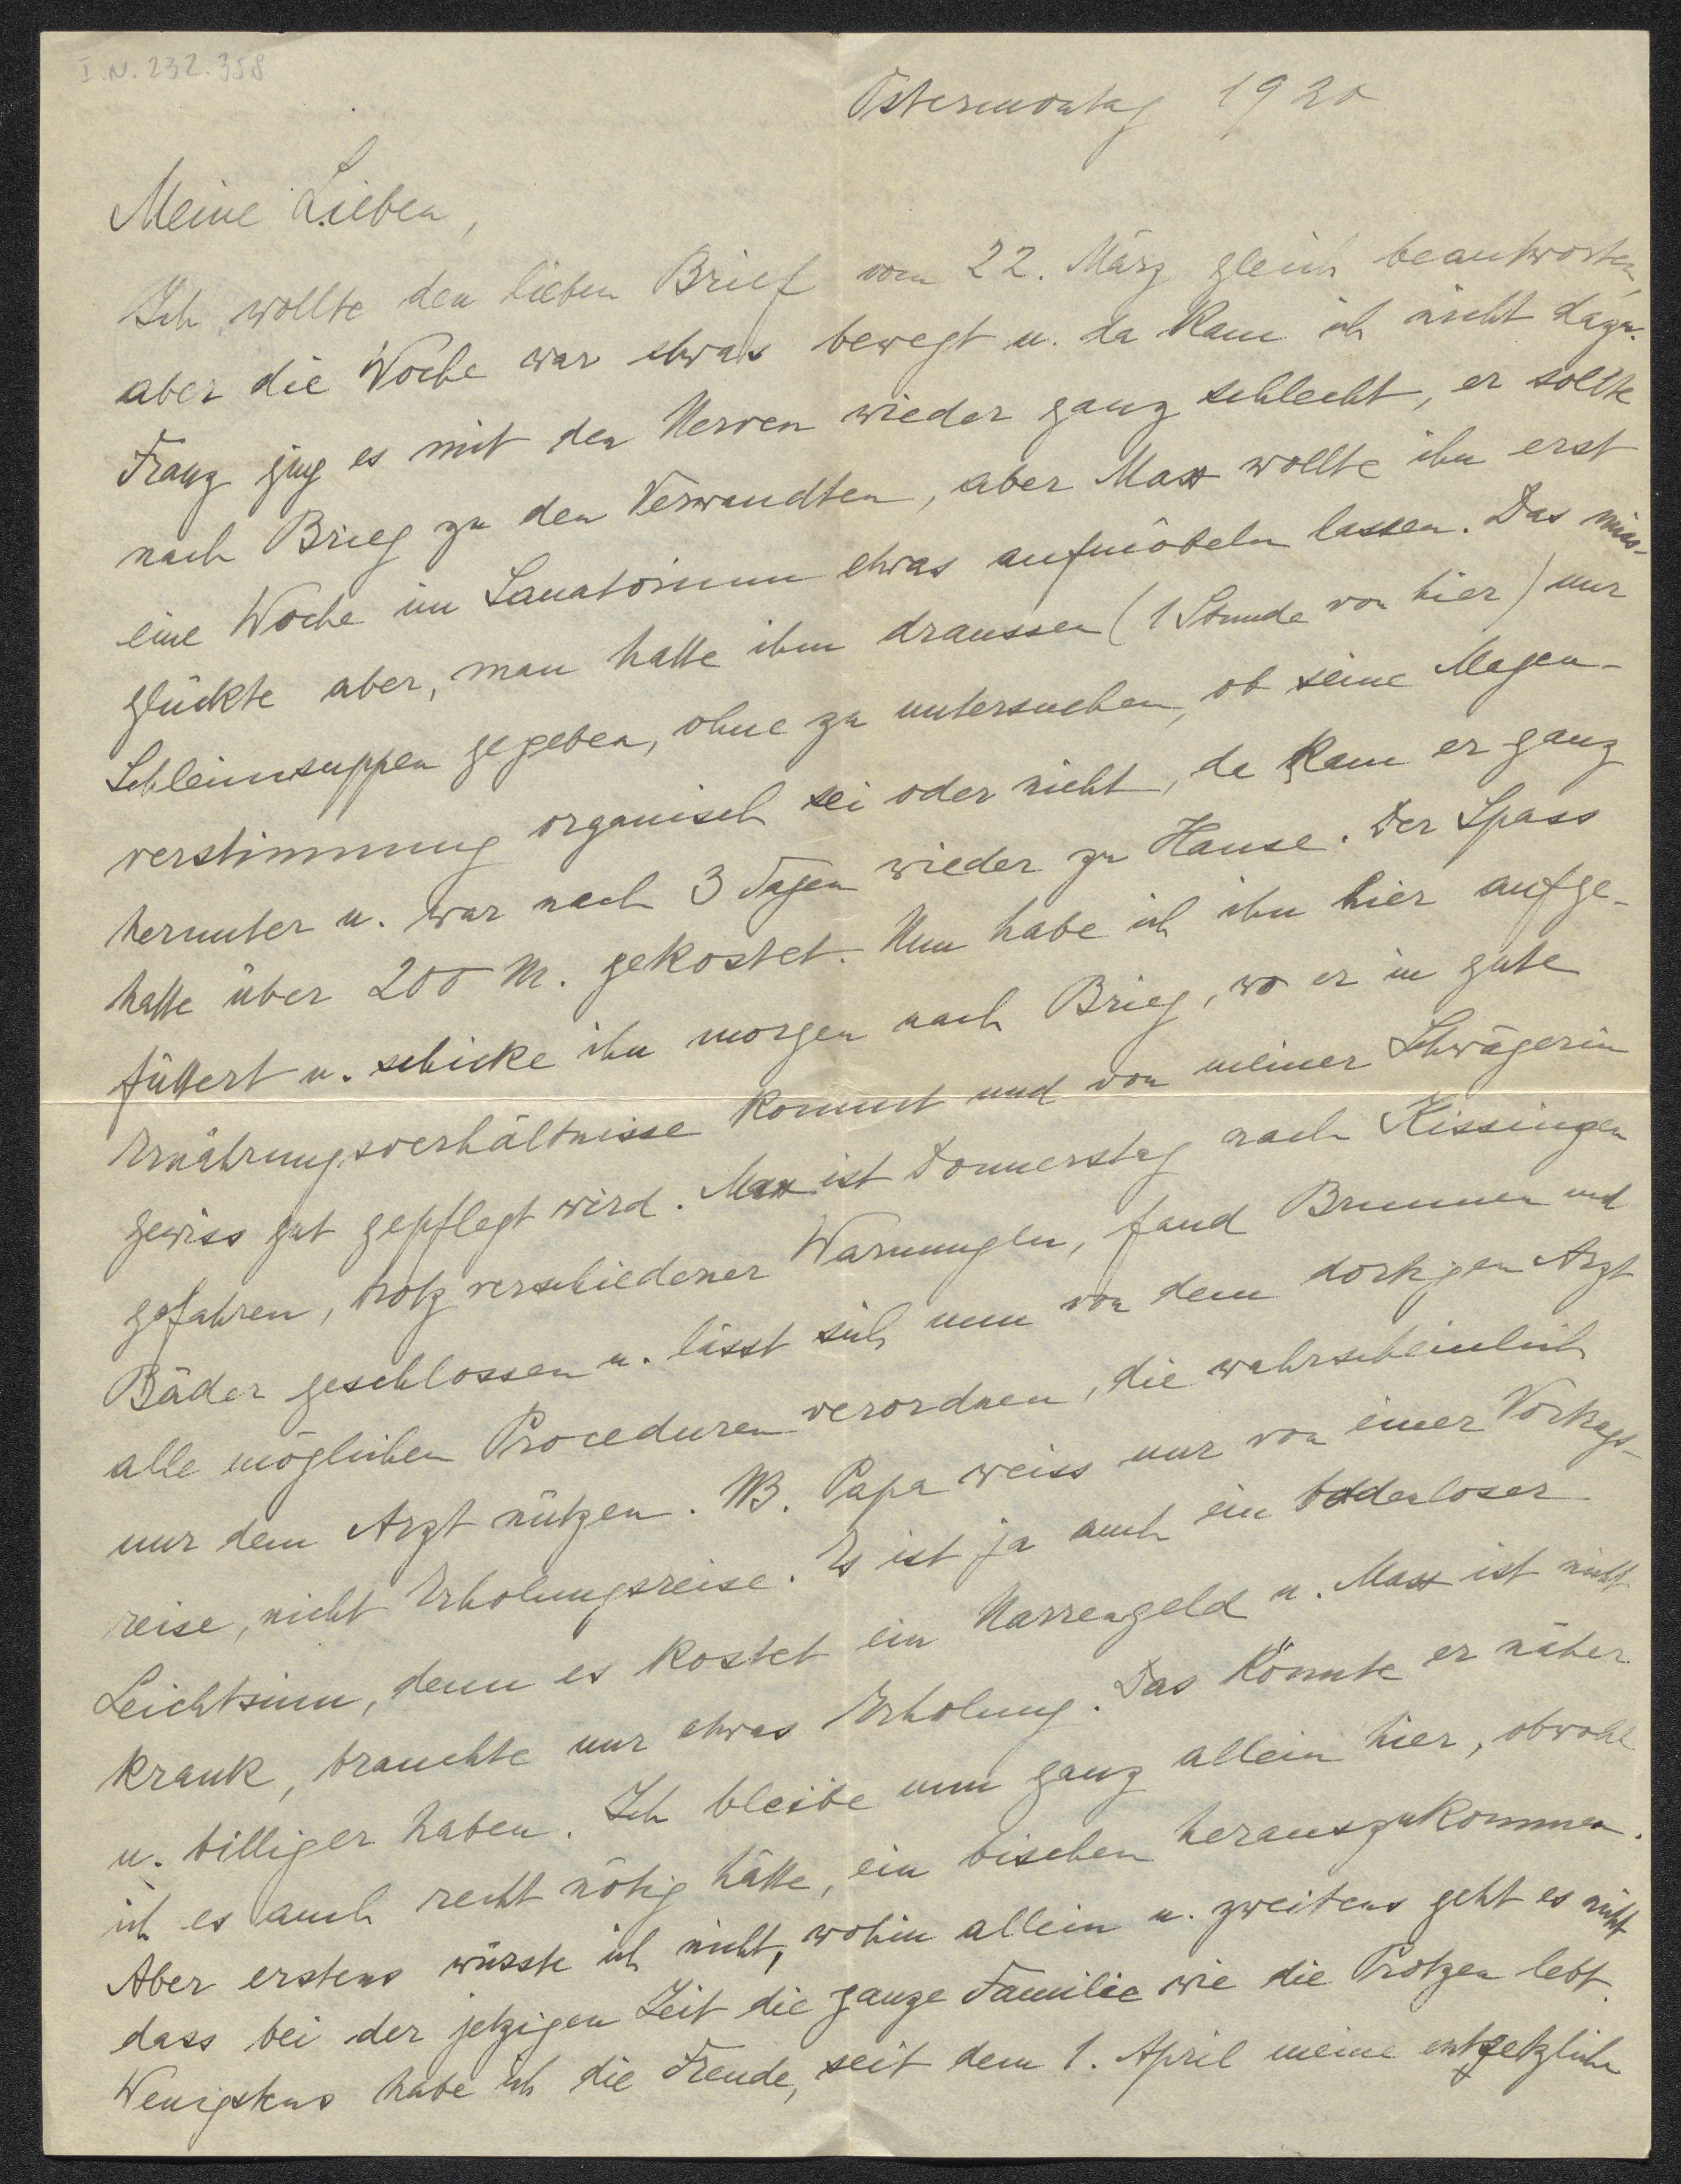 I.N. 232.358
Ostermontag 1920
Meine Lieben,
Ich wollte den lieben Brief vom 22. März gleich beantworten,
aber die Woche war etwas bewegt u. da kam ich nicht dazu.
Franz ging es mit den Nerven wieder ganz schlecht, er sollte
nach Brieg zu den Verwandten, aber Max wollte ihn erst
eine Woche im Sanatorium etwas aufmöbeln lassen. Das miss-
glückte aber, man hatte ihm draussen (1 Stunde von hier) nur
Schleimsuppen gegeben, ohne zu untersuchen, ob seine Magen-
verstimmung organisch sei oder nicht, da kam er ganz
herunter u. war nach 3 Tagen wieder zu Hause. Der Spass
hatte über 200 M. gekostet. Nun habe ich ihn hier aufge-
füttert u. schicke ihn morgen nach Brieg, wo er in gute
Ernährungsverhältnisse kommt und von meiner Schwägerin
gewiss gut gepflegt wird. Max ist Donnerstag nach Kissingen
gefahren, trotz verschiedener Warnungen, fand Brunnen und
Bäder geschlossen u. lässt sich nun von dem dortigen Arzt
alle möglichen Proceduren verordnen, die wahrscheinlich
nur dem Arzt nützen. NB. Papa weiss nur von einer Vortrags-
reise, nicht Erholungsreise. Es ist ja auch ein bodenloser
Leichtsinn, denn es kostet ein Narrengeld u. Max ist nicht
krank, brauchte nur etwas Erholung. Das könnte er näher
u. billiger haben. Ich bleibe nun ganz allein hier, obwohl
ich es auch recht nötig hätte, ein bischen herauszukommen.
Aber erstens wüsste ich nicht, wohin allein u. zweitens geht es nicht
dass bei der jetzigen Zeit die ganze Familie wie die Protzen lebt.
Wenigstens habe ich die Freude, seit dem 1. April meine entsetzliche